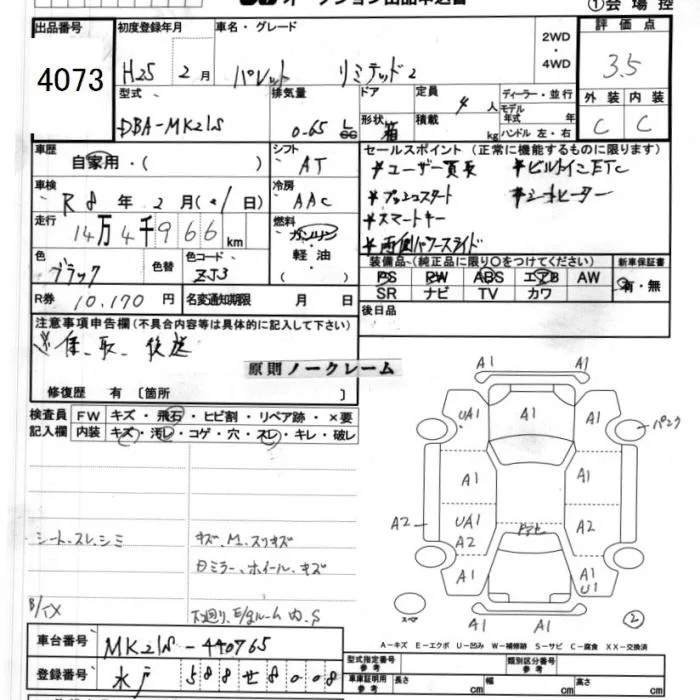 ①会場控
出品番号 初度登録年月 車名・グレード 2WD・4WD 評価点
4073 H25 2月 パレット リミテッド2 3.5
型式 排気量 ドア 定員 4人 ディーラー・並行 外装 内装
DBA-MK21S 0.65 L 形状 箱 積載 kg モデル年式 年式 ハンドル 左・右 C C
車歴 自家用・( ) シフト AT
セールスポイント(正常に機能するものに限ります)
*ユーザー買取 *ビルトインETC
*プッシュスタート *シートヒーター
*スマートキー
*両側パワースライド
車検 R8年2月( 日) 冷房 AAC
走行 14万4千966km 燃料 ガソリン・軽油・( )
色 ブラック 色替 色コード ZJ3
装備品(純正品に限り○をつけてください) 新車保証書
PS PW ABS エアB AW 有・無
SR ナビ TV カワ
R券 10,170円 名変通知期限 月 日
後日品
注意事項申告欄(不具合内容等は具体的に記入して下さい)
取、後送
原則ノークレーム
修復歴 有〔箇所 〕
検査員記入欄 FW キズ・飛石・ヒビ割・リペア跡・×要
内装 キズ・汚レ・コゲ・穴・スレ・キレ・破レ
A1 A1
UA1 A1 A1 パンク
A1 A1
A2 UA1 A2 A2
A1 A1 U1
A1 A1
シート、スレ、シミ キズ、M、スリキズ
ミラー、ホイール、キズ
下廻り、E/gルーム内、S
スペア ②
A-キズ E-エクボ U-凹み W-補修跡 S-サビ C-腐食 XX-交換済
車台番号 MK21S-440765
登録番号 水戸 588 せ 8008
型式指定番号 参考 類別区分番号 参考
車庫証明用 参考 長さ cm 幅 cm 高さ cm